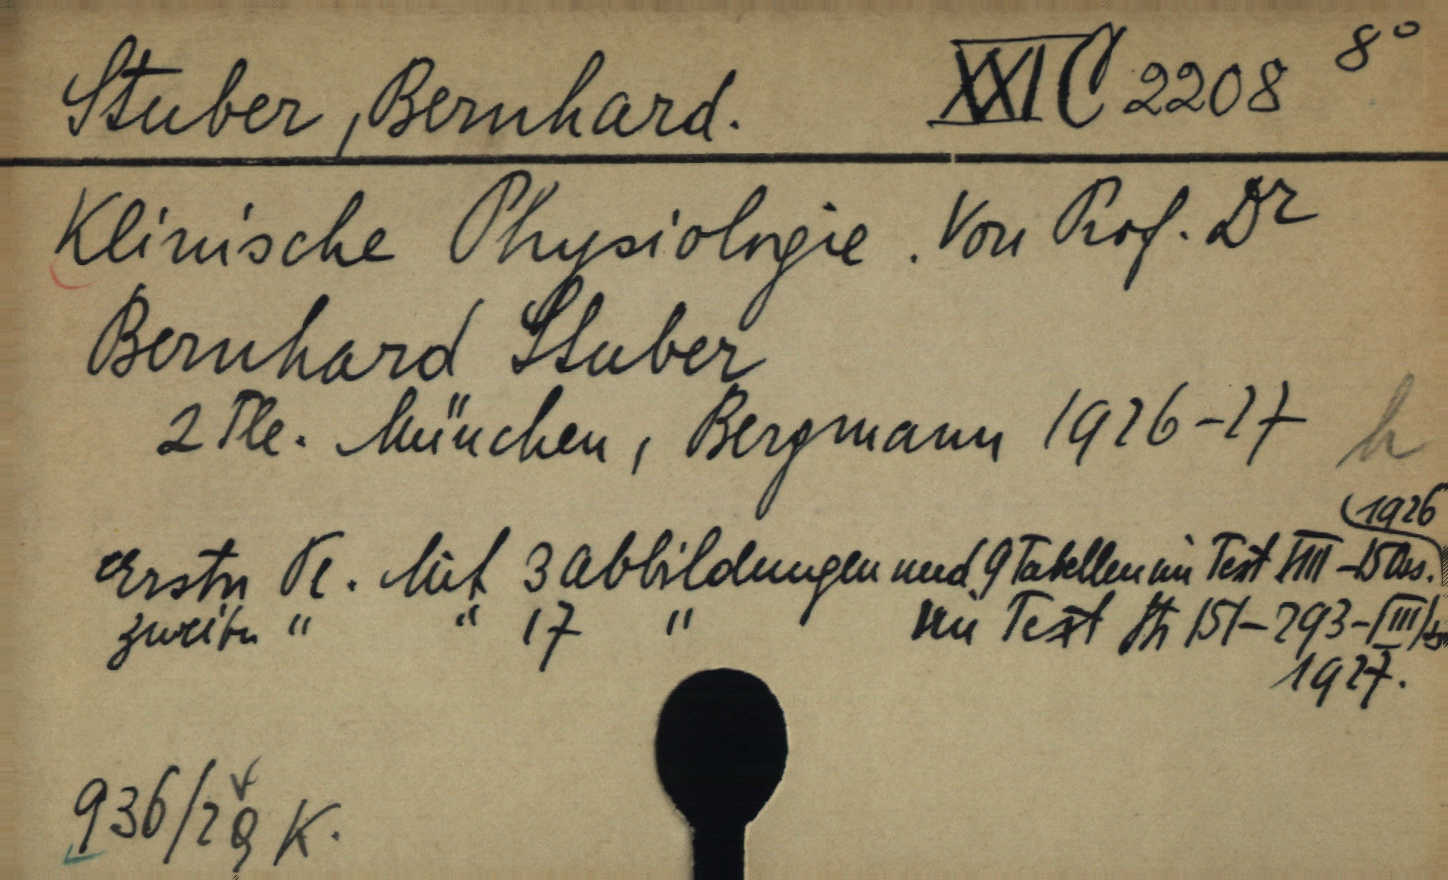 Stuber, Bernhard. XXI C 2208 8°
Klinische Physiologie. Von Prof. Dr
Bernhard Stuber
2 Tle. München, Bergmann 1926-27
h
1926
Erster Tl. Mit 3 Abbildungen und 9 Tabellen im Text VIII-150 S.
zweiter " " 17 " im Text 151-293-(III)
1927.
936/29 K.